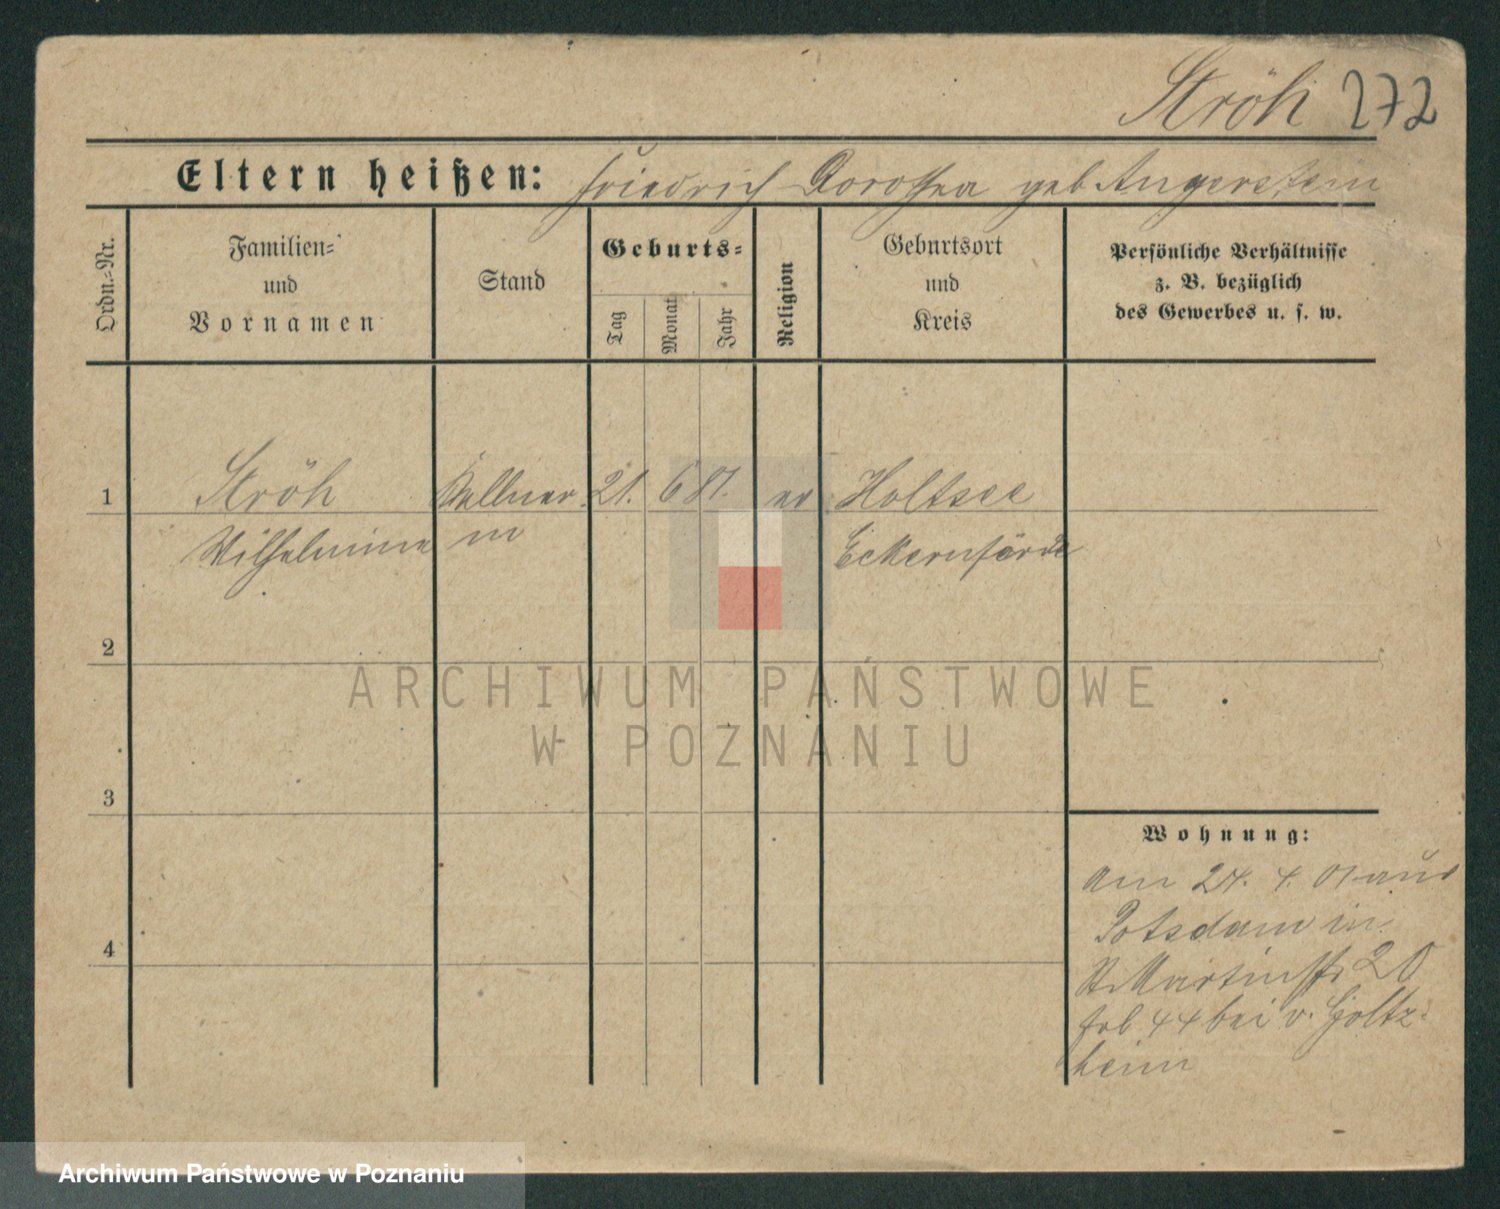 Ströh 272
Eltern heißen: Friedrich Dorothea geb Angerstein
Ordn.=Nr.
Familien=
und
Vornamen
Stand
Geburts=
Tag
Monat
Jahr
Religion
Geburtsort
und
Kreis
Persönliche Verhältnisse
z. B. bezüglich
des Gewerbes u. s. w.
1 Ströh Kellner 21. 6 81. ev Holtsee
Wilhelmine in Eckernförde
2
3
4
Wohnung:
Am 24. 4. 01 aus
Potsdam in
St. Martinstr 20
bei v. Goltz-
heim
ARCHIWUM PAŃSTWOWE
W POZNANIU
Archiwum Państwowe w Poznaniu